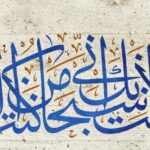 أنت سبحانك إني كنت من